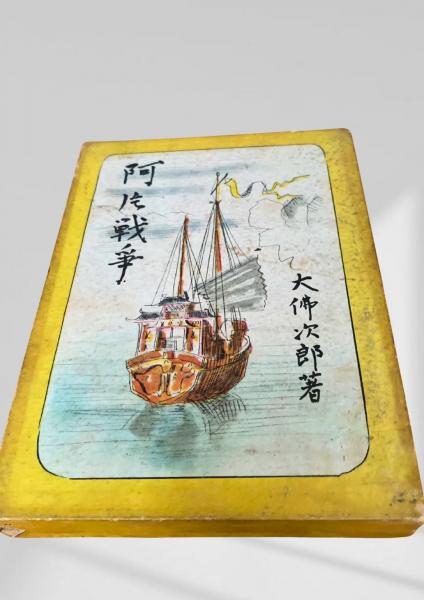 阿片戦争
大佛次郎著